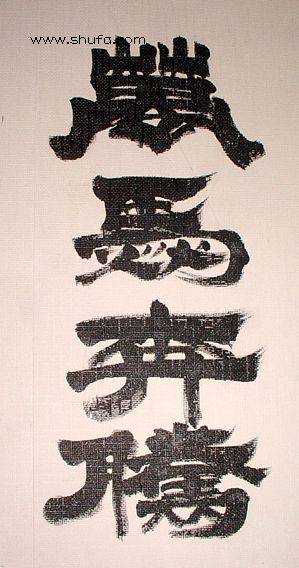 www.shufa.com
萬馬奔騰